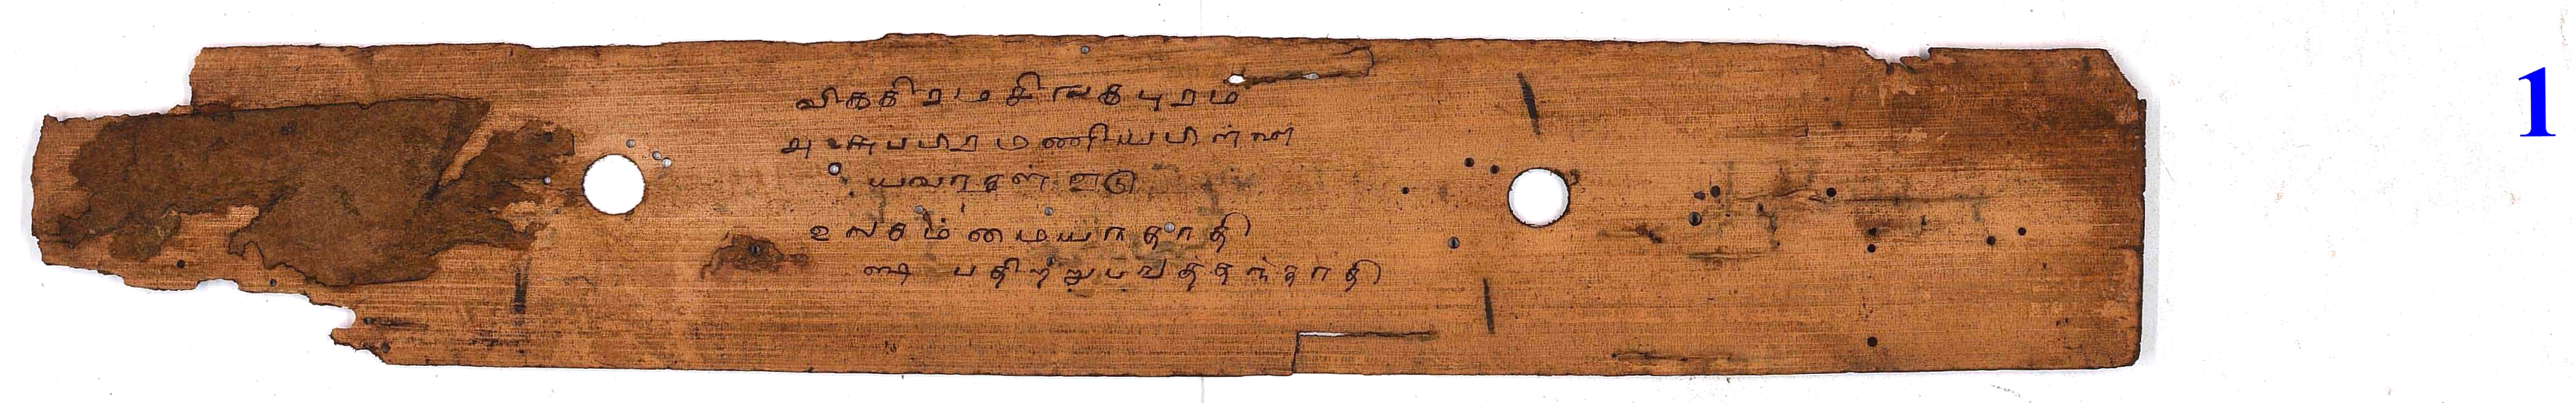 விக்கிரமசிங்கபுரம்
அ சுப்பிரமணியபிள்ளை
யவர்கள் ஏடு
உலகம்மையந்தாதி
ஷ பதிற்றுப்பத்தந்தாதி
1